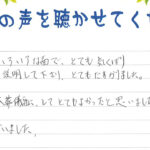 の声を聴かせてく
いろいろな面で、とても気くばり
説明して下さり、とてもたすかりました。
して とてもよかったと思いまし
いました。